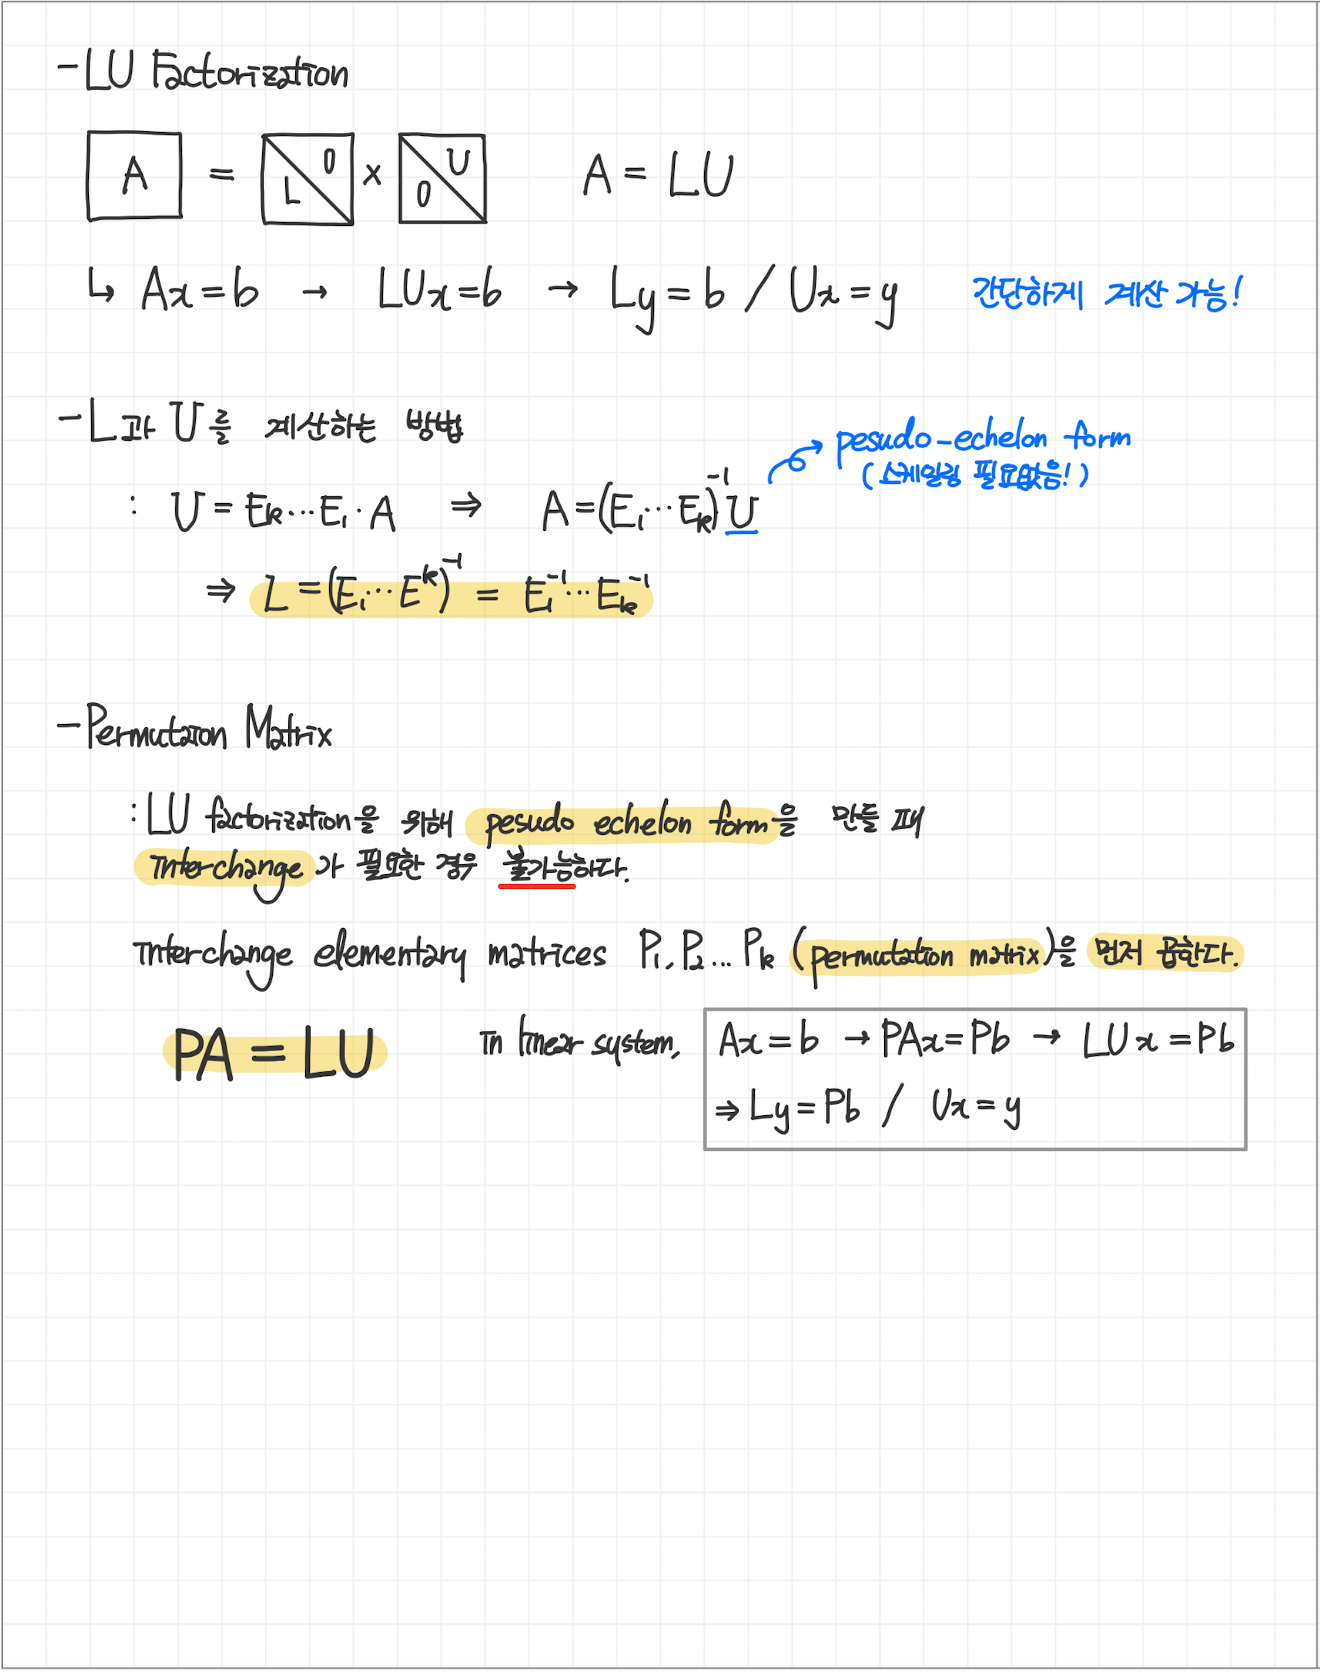 - LU Factorization
A = L 0 x U 0 A = LU
↳ Ax = b → LUx = b → Ly = b / Ux = y 간단하게 계산 가능!
- L과 U를 계산하는 방법
pesudo-echelon form
(스케일링 필요없음!)
: U = Ek ... E1 · A ⇒ A = (E1 ... Ek)⁻¹ U
⇒ L = (E1 ... E^k)⁻¹ = E1⁻¹ ... Ek⁻¹
- Permutation Matrix
: LU factorization을 위해 pesudo echelon form을 만들 때
interchange가 필요한 경우 불가능하다.
interchange elementary matrices P1, P2 ... Pk (permutation matrix)을 먼저 곱한다.
PA = LU in linear system, Ax = b → PAx = Pb → LUx = Pb
⇒ Ly = Pb / Ux = y